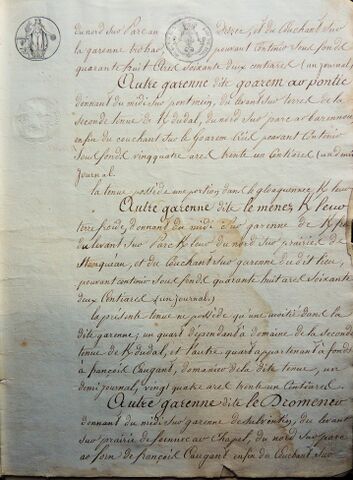 du nord sur Parc an Dozer, et du Couchant sur
la garenne trohar, pouvant Contenir sous fond
quarante huit Ares Soixante deux centiares (un journal)
Autre garenne dite goarem ar pontic
donnant du midi sur pontmein, du levant sur terres de la
seconde tenue de K/dudal, du nord sur parc ar varennou
enfin du couchant sur le Goarem Creis pouvant Contenir
Sous fond vingt quatre ares trente un Centiares (un demi
Journal.
la tenue possède une portion dans
Autre garenne dite le menez K/leuv
terre froide, donnant du midi sur garenne de
du levant sur Parc K/leuv du nord sur prairie de
et du Couchant sur garenne du dit lieu,
pouvant contenir sous fond quarante huit ares soixante
deux Centiares (un journal,)
la présente tenue ne possède qu'une moitié dans la
dite garenne; un quart dépendant à domaine de la seconde
tenue de K/dudal, et l'autre quart appartenant à fonds
à françois Caugant, domanier de la dite tenue, un
demi journal, vingt quatre ares trente un Centiares.
Autre garenne dite le Dromenec
donnant du midi sur garenne de du levant
sur prairie de foennec ar Chapel, du nord sur parc
ar forn de françois Caugant enfin du Couchant sur